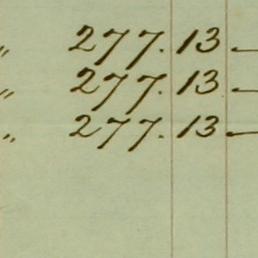 „ 277. 13 —
„ 277. 13 —
„ 277. 13 —